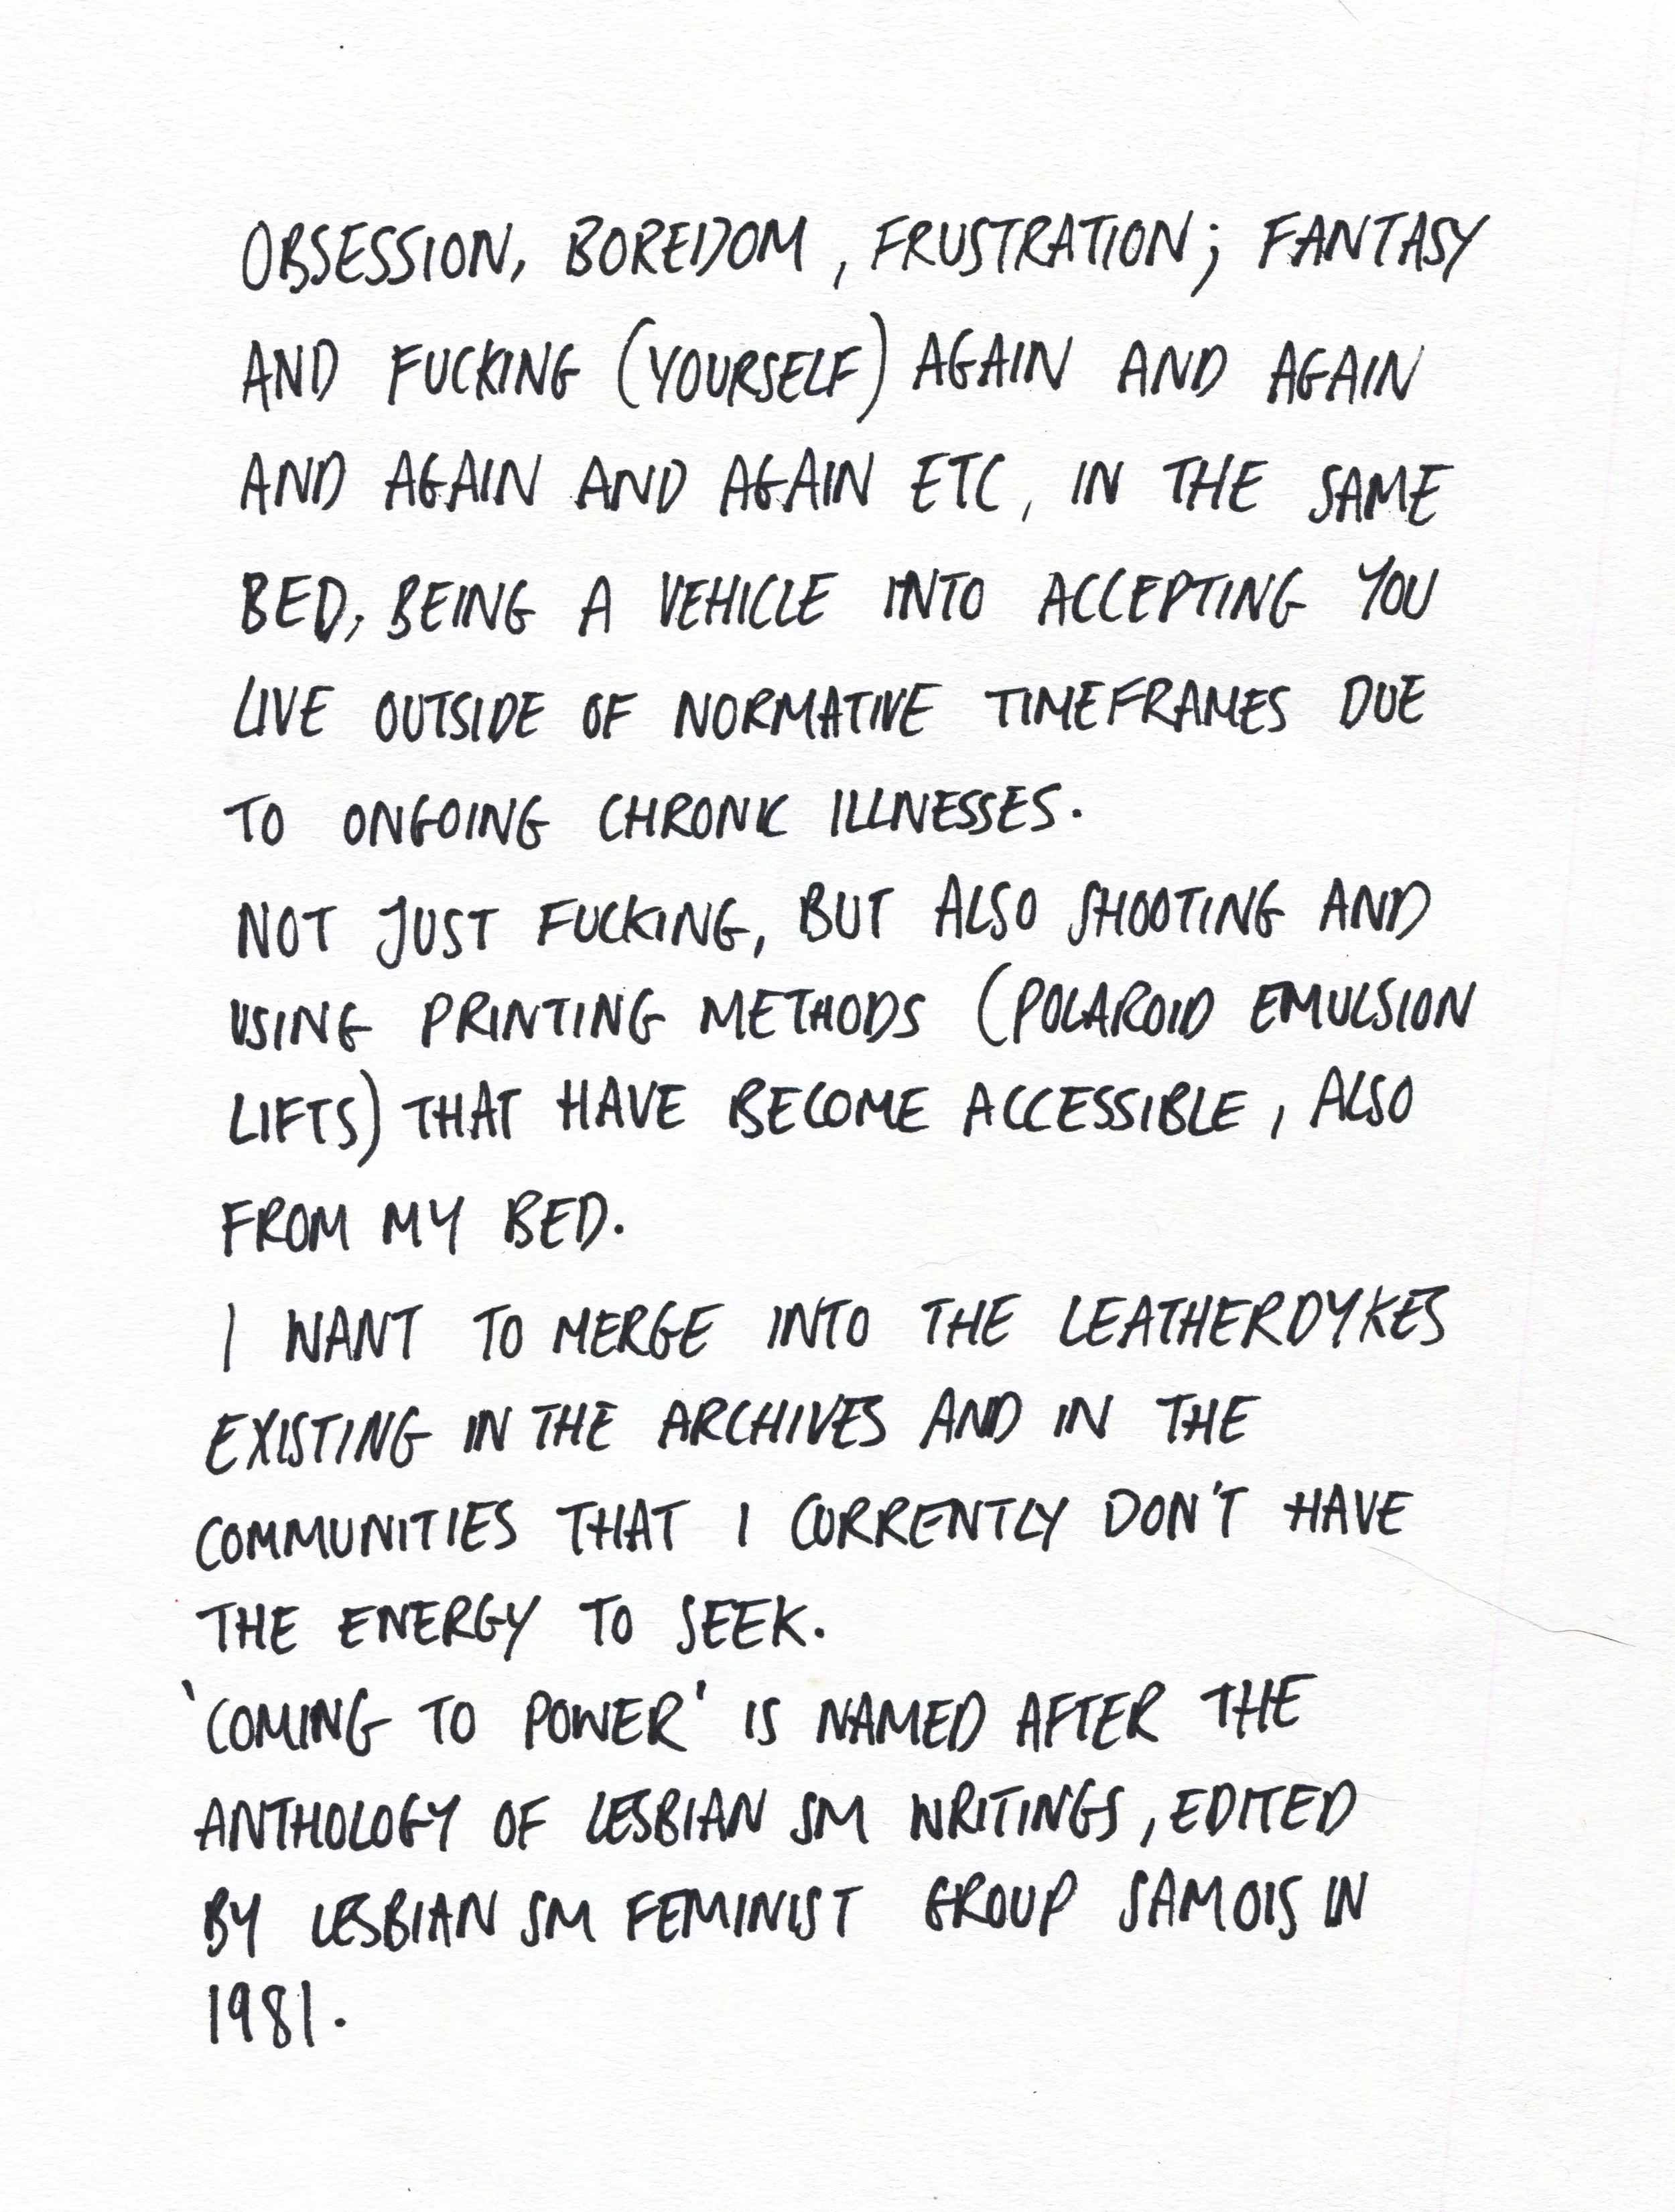 OBSESSION, BOREDOM, FRUSTRATION; FANTASY
AND FUCKING (YOURSELF) AGAIN AND AGAIN
AND AGAIN AND AGAIN ETC, IN THE SAME
BED, BEING A VEHICLE INTO ACCEPTING YOU
LIVE OUTSIDE OF NORMATIVE TIMEFRAMES DUE
TO ONGOING CHRONIC ILLNESSES.
NOT JUST FUCKING, BUT ALSO SHOOTING AND
USING PRINTING METHODS (POLAROID EMULSION
LIFTS) THAT HAVE BECOME ACCESSIBLE, ALSO
FROM MY BED.
I WANT TO MERGE INTO THE LEATHERDYKES
EXISTING IN THE ARCHIVES AND IN THE
COMMUNITIES THAT I CURRENTLY DON'T HAVE
THE ENERGY TO SEEK.
'COMING TO POWER' IS NAMED AFTER THE
ANTHOLOGY OF LESBIAN SM WRITINGS, EDITED
BY LESBIAN SM FEMINIST GROUP SAMOIS IN
1981.